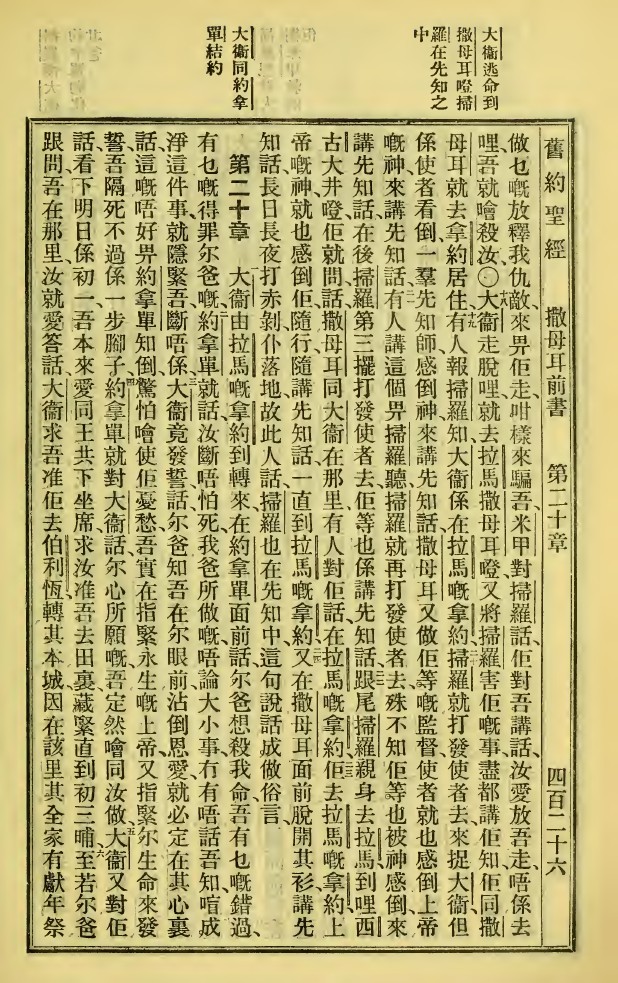 大衞逃命到
撒母耳嶝掃
羅在先知之
中
大衞同約拿
單結約
舊約聖經 撒母耳前書 第二十章 四百二十六
做乜嘅放釋我仇敵來畀佢走咁樣來騙吾米甲對掃羅話佢對吾講話汝愛放吾走唔係去
哩吾就噲殺汝〇大衞走脫哩就去拉馬撒母耳嶝又將掃羅害佢嘅事盡都講佢知佢同撒
母耳就去拿約居住有人報掃羅知大衞係在拉馬嘅拿約掃羅就打發使者去來捉大衞但
係使者看倒一羣先知師感倒神來講先知話撒母耳又做佢等嘅監督使者就也感倒上帝
嘅神來講先知話有人講這個畀掃羅聽掃羅就再打發使者去殊不知佢等也被神感倒來
講先知話在後掃羅第三擺打發使者去佢等也係講先知話跟尾掃羅親身去拉馬到哩西
古大井嶝佢就問話撒母耳同大衞在那里有人對佢話在拉馬嘅拿約佢去拉馬嘅拿約上
帝嘅神就也感倒佢隨行隨講先知話一直到拉馬嘅拿約又在撒母耳面前脫開其衫講先
知話長日長夜打赤剝仆落地故此人話掃羅也在先知中這句說話成做俗言
第二十章 大衞由拉馬嘅拿約到轉來在約拿單面前話尔爸想殺我命吾有乜嘅錯過
有乜嘅得罪尔爸嘅約拿單就話汝斷唔怕死我爸所做嘅唔論大小事冇有唔話吾知喧成
淨這件事就隱緊吾斷唔係大衞竟發誓話尔爸知吾在尔眼前沾倒恩愛就必定在其心裏
話這嘅唔好畀約拿單知倒驚怕噲使佢憂愁吾實在指緊永生嘅上帝又指緊尔生命來發
誓吾隔死不過係一步腳子約拿單就對大衞話尔心所願嘅吾定然噲同汝做大衞又對佢
話看下明日係初一吾本來愛同王共下坐席求汝准吾去田裏藏緊直到初三晡至若尔爸
跟問吾在那里汝就愛答話大衞求吾准佢去伯利恆轉其本城因在該里其全家有獻年祭